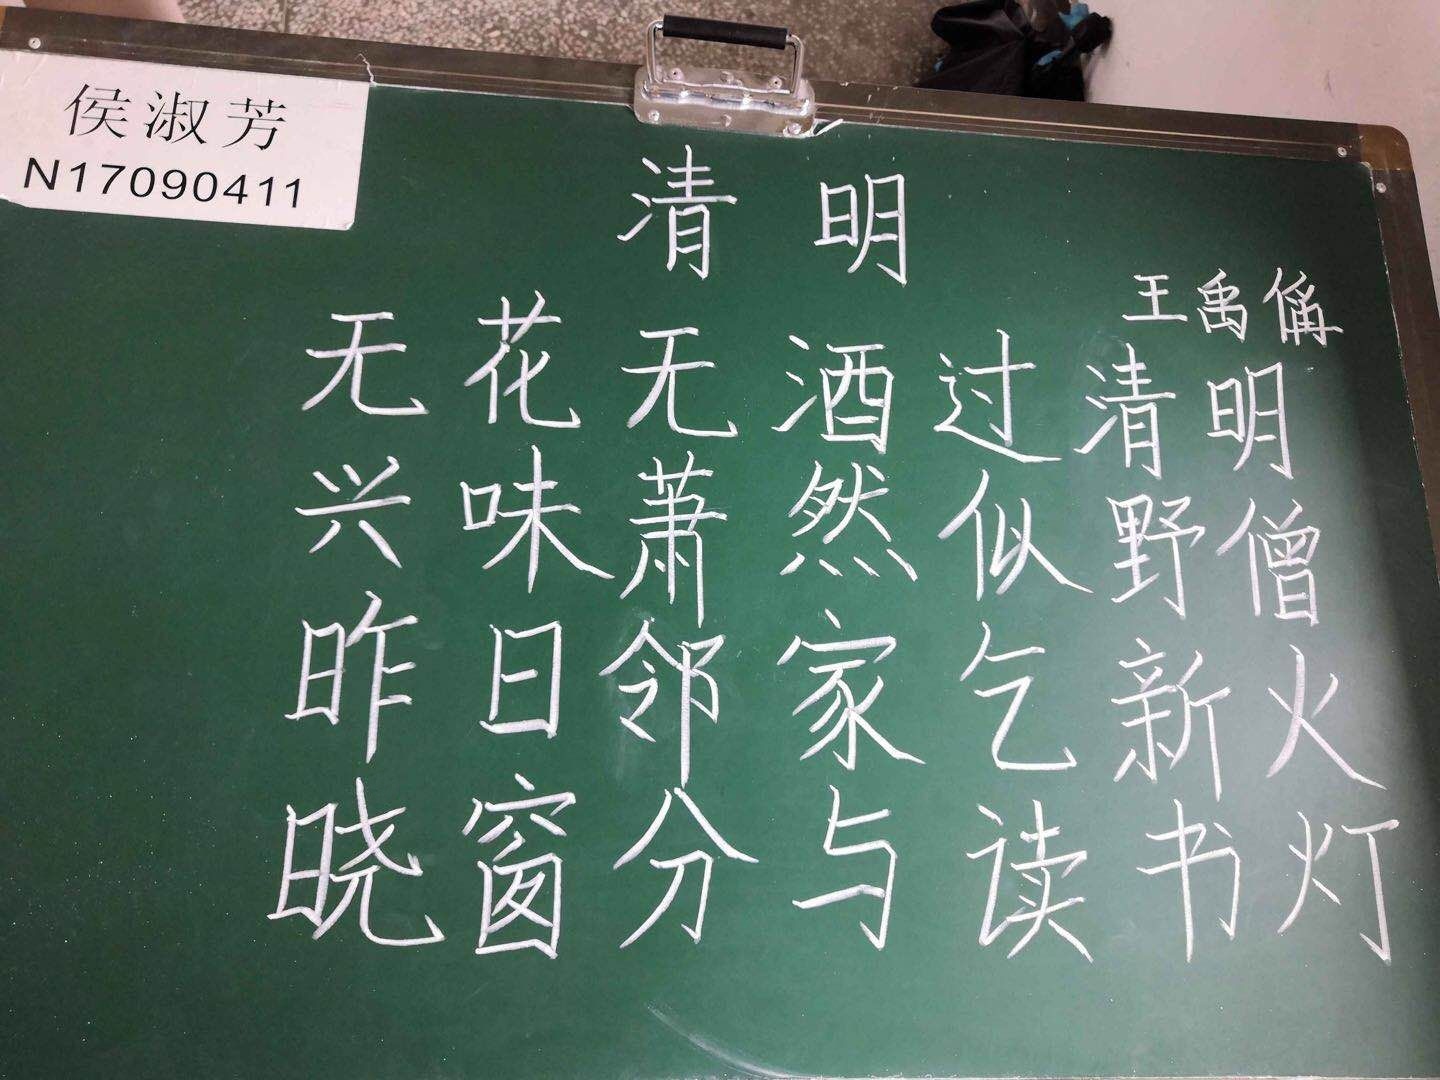 侯淑芳
N17090411
清明
王禹偁
无花无酒过清明
兴味萧然似野僧
昨日邻家乞新火
晓窗分与读书灯